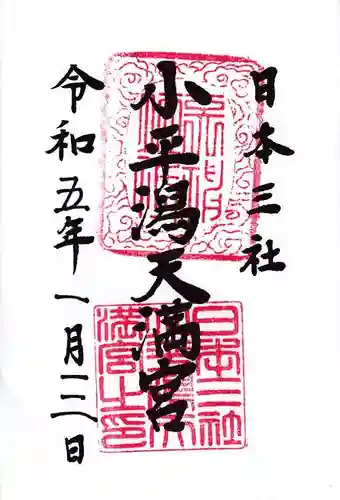 日本三社
小平潟天満宮
令和五年一月二日